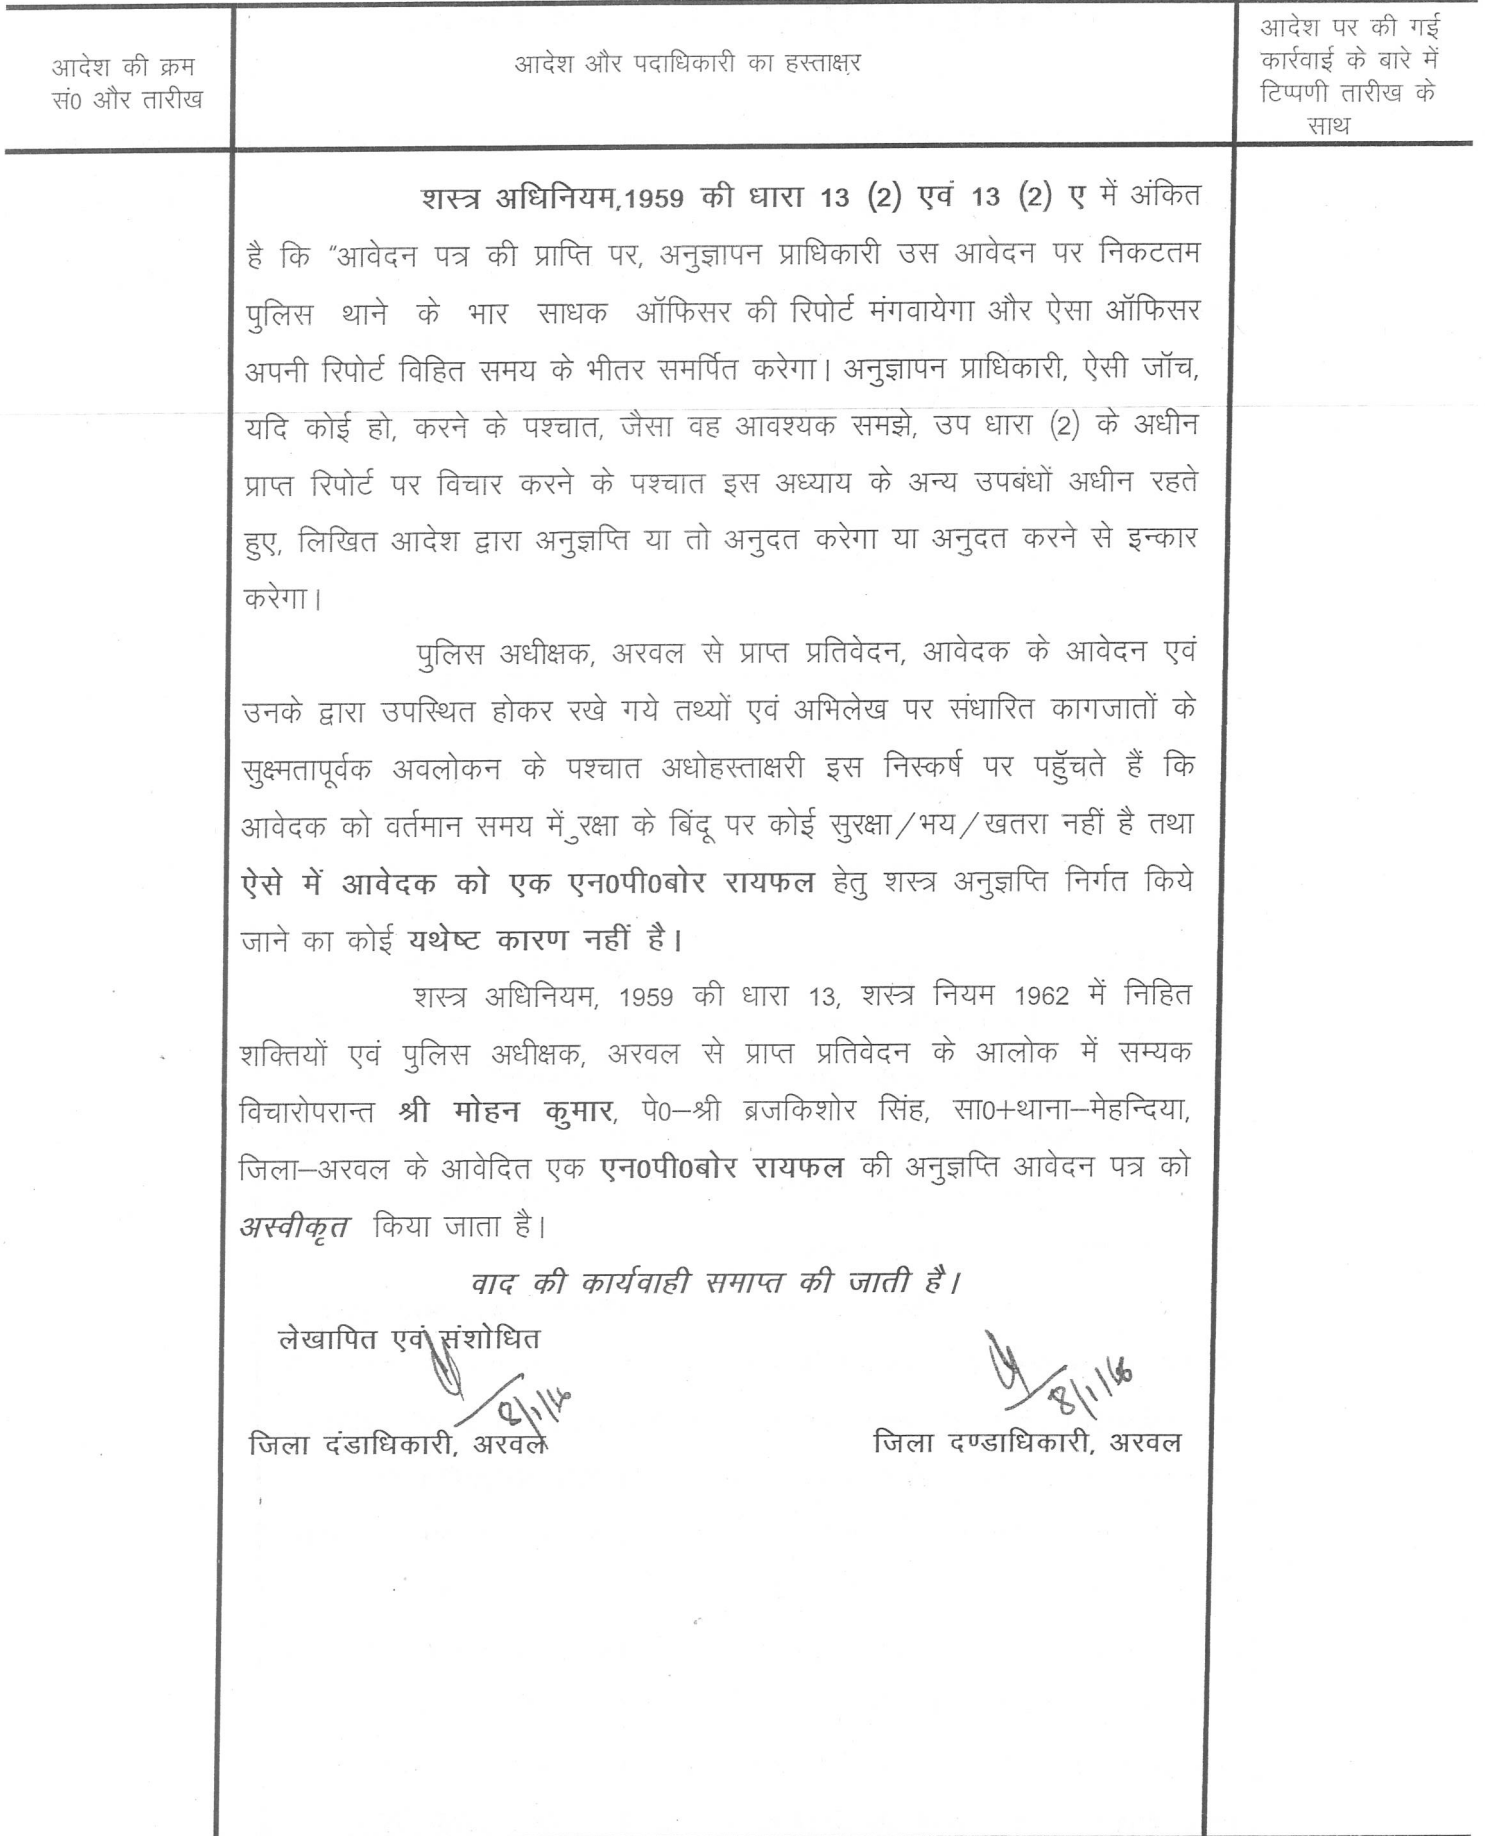 आदेश की क्रम
सं0 और तारीख
आदेश और पदाधिकारी का हस्ताक्षर
आदेश पर की गई
कार्रवाई के बारे में
टिप्पणी तारीख के
साथ
शस्त्र अधिनियम,1959 की धारा 13 (2) एवं 13 (2) ए में अंकित
है कि “आवेदन पत्र की प्राप्ति पर, अनुज्ञापन प्राधिकारी उस आवेदन पर निकटतम
पुलिस थाने के भार साधक ऑफिसर की रिपोर्ट मंगवायेगा और ऐसा ऑफिसर
अपनी रिपोर्ट विहित समय के भीतर समर्पित करेगा। अनुज्ञापन प्राधिकारी, ऐसी जॉच,
यदि कोई हो, करने के पश्चात, जैसा वह आवश्यक समझे, उप धारा (2) के अधीन
प्राप्त रिपोर्ट पर विचार करने के पश्चात इस अध्याय के अन्य उपबंधों अधीन रहते
हुए, लिखित आदेश द्वारा अनुज्ञप्ति या तो अनुदत करेगा या अनुदत करने से इन्कार
करेगा।
पुलिस अधीक्षक, अरवल से प्राप्त प्रतिवेदन, आवेदक के आवेदन एवं
उनके द्वारा उपस्थित होकर रखे गये तथ्यों एवं अभिलेख पर संधारित कागजातों के
सुक्ष्मतापूर्वक अवलोकन के पश्चात अधोहस्ताक्षरी इस निस्कर्ष पर पहुॅचते हैं कि
आवेदक को वर्तमान समय में ुरक्षा के बिंदू पर कोई सुरक्षा/भय/खतरा नहीं है तथा
ऐसे में आवेदक को एक एन0पी0बोर रायफल हेतु शस्त्र अनुज्ञप्ति निर्गत किये
जाने का कोई यथेष्ट कारण नहीं है।
शस्त्र अधिनियम, 1959 की धारा 13, शस्त्र नियम 1962 में निहित
शक्तियों एवं पुलिस अधीक्षक, अरवल से प्राप्त प्रतिवेदन के आलोक में सम्यक
विचारोपरान्त श्री मोहन कुमार, पे0–श्री ब्रजकिशोर सिंह, सा0+थाना–मेहन्दिया,
जिला–अरवल के आवेदित एक एन0पी0बोर रायफल की अनुज्ञप्ति आवेदन पत्र को
अस्वीकृत किया जाता है।
वाद की कार्यवाही समाप्त की जाती है।
लेखापित एवं संशोधित
8/1/16
8/1/16
जिला दंडाधिकारी, अरवल
जिला दण्डाधिकारी, अरवल